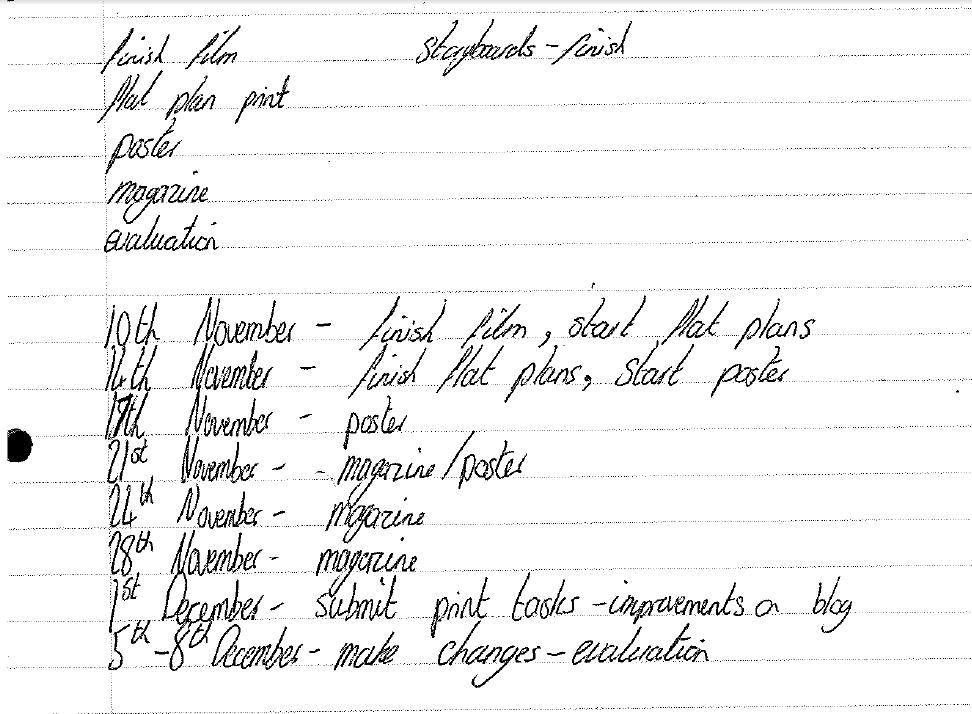 finish film storyboards - finish
flat plan print
poster
magazine
evaluation
10th November - finish film, start flat plans
14th November - finish flat plans, start poster
17th November - poster
21st November - - magazine/poster
24th November - magazine
28th November - magazine
1st December - submit print tasks - improvements on blog
5th - 8th December - make changes - evaluation